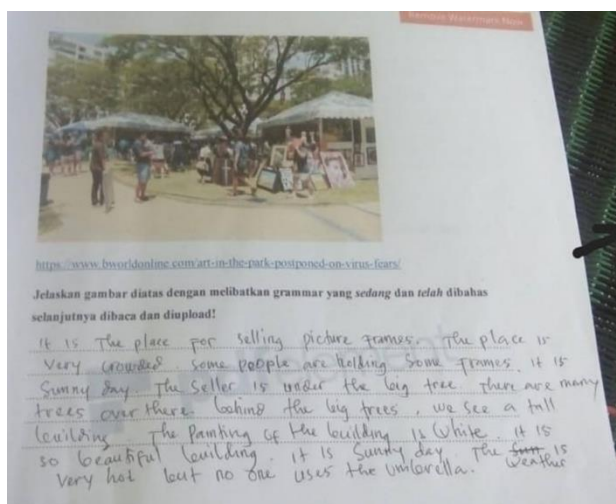 Remove Watermark Now
https://www.bworldonline.com/art-in-the-park-postponed-on-virus-fears/
Jelaskan gambar diatas dengan melibatkan grammar yang sedang dan telah dibahas
selanjutnya dibaca dan diupload!
It is The place for selling picture frames. The place is
very crowded. some people are holding some frames. it is
Sunny day. The seller is under the big tree. There are many
trees over there. behind the big trees, we see a tall
building. The Painting of the building is White. it is
so beautiful building. it is Sunny day. The Sun is
very hot but no one uses the umbrella. Weather